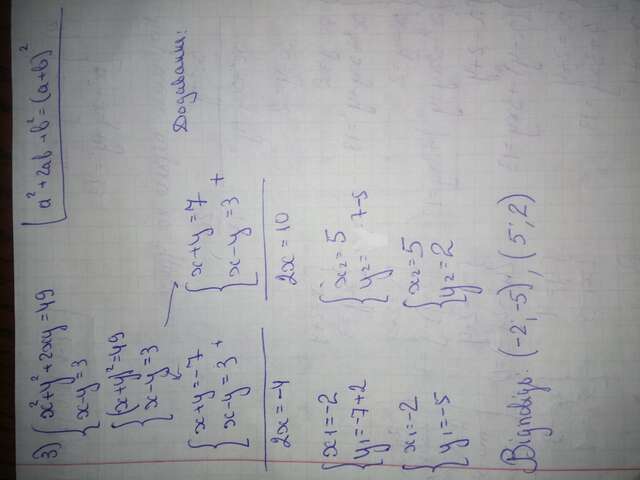 3) { x²+y²+2xy=49
{ x-y=3
a²+2ab+b²=(a+b)²
{ (x+y)²=49
{ x-y=3
{ x+y=-7
{ x-y=3 +
2x=-4
{ x1=-2
{ y1=-7+2
{ x1=-2
{ y1=-5
Додавання:
{ x+y=7
{ x-y=3 +
2x=10
{ x2=5
{ y2= 7-5
{ x2=5
{ y2=2
Відповідь: (-2;-5); (5;2)